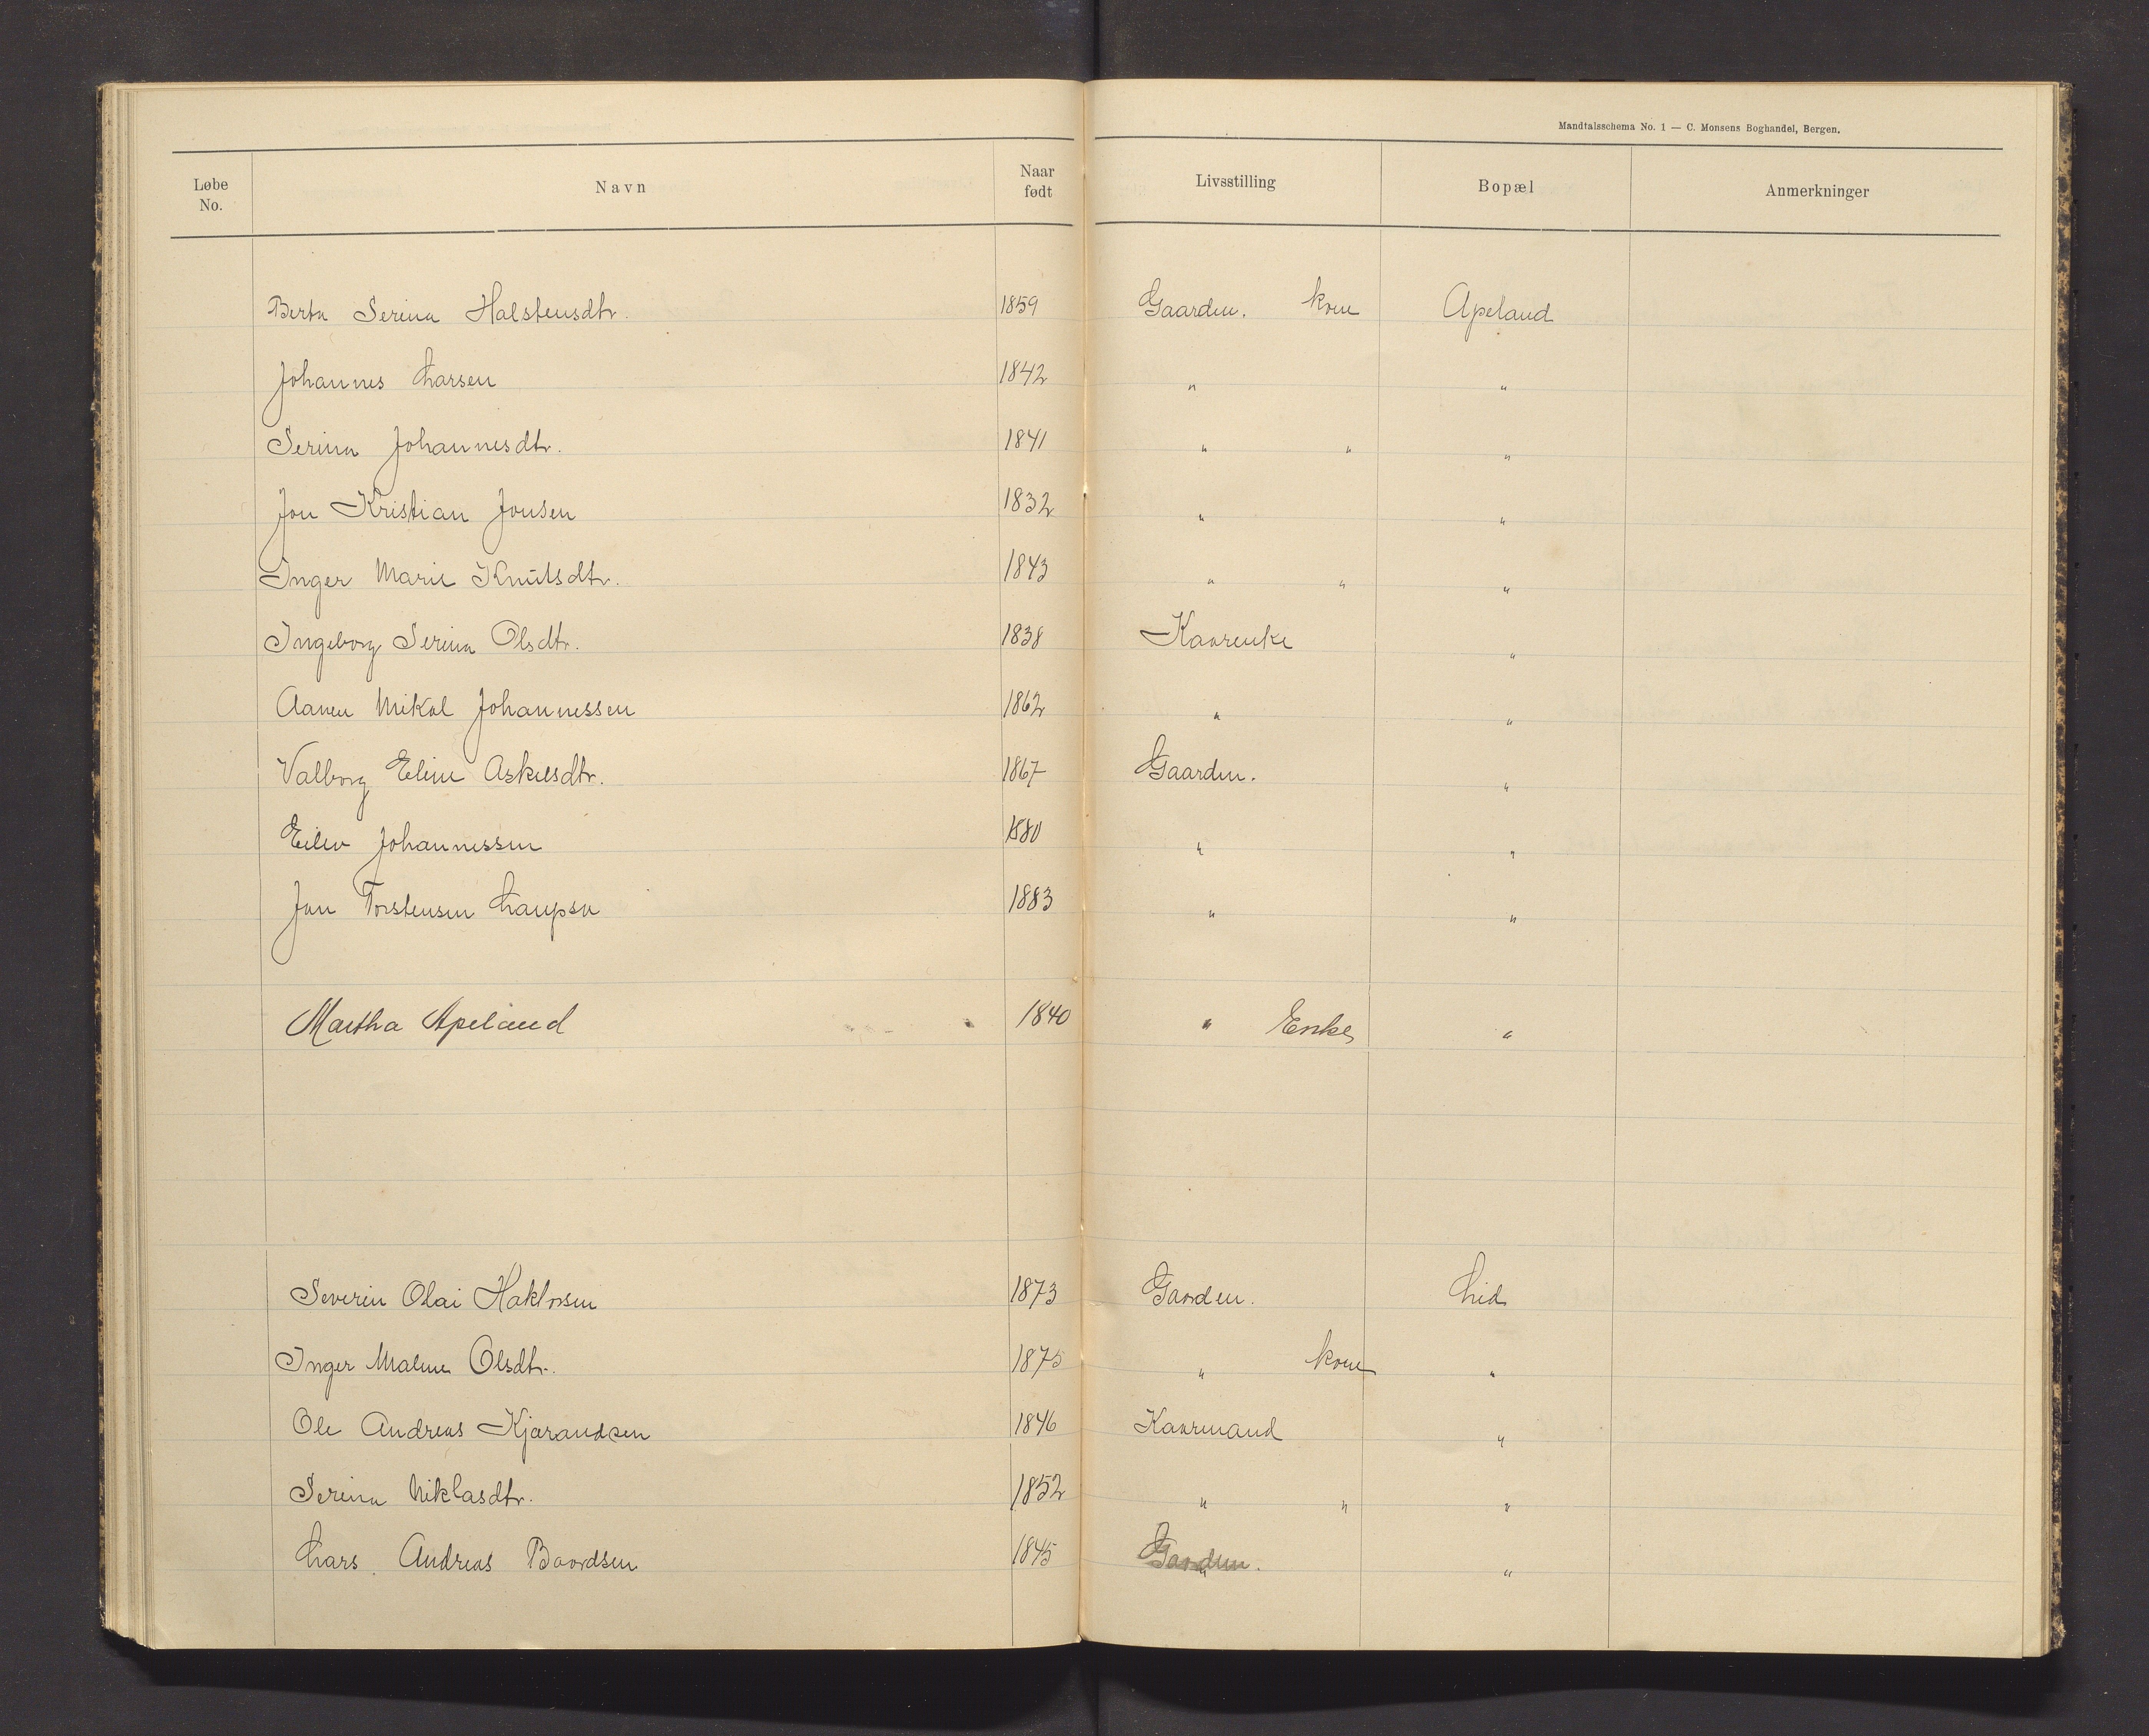 Mandtalsschema No. 1 — C. Monsens Boghandel, Bergen.
Løbe No. Navn Naar født Livsstilling Bopæl Anmerkninger
Berta Serina Halstensdtr. 1859 Gaardm. kone Apeland
Johannes Larsen 1842 " "
Serina Johannesdtr. 1841 " " "
Jon Kristian Jonsen 1832 " "
Inger Marie Knutsdtr. 1843 " " "
Ingeborg Serina Olsdtr. 1838 Kaarenke "
Aanen Mikal Johannessen 1862 " "
Valborg Eline Askilsdtr. 1867 Gaardm. "
Eilev Johannessen 1880 " "
Jon Torstensen Laupsa 1883 " "
Martha Apeland 1840 " Enke "
Severin Olai Haktorsen 1873 Gaardm. Lid
Inger Malene Olsdtr. 1875 " kone "
Ole Andreas Kjærandsen 1846 Kaarmand "
Serina Niklasdtr. 1852 " " "
Lars Andreas Baardsen 1845 Gaardm. " "